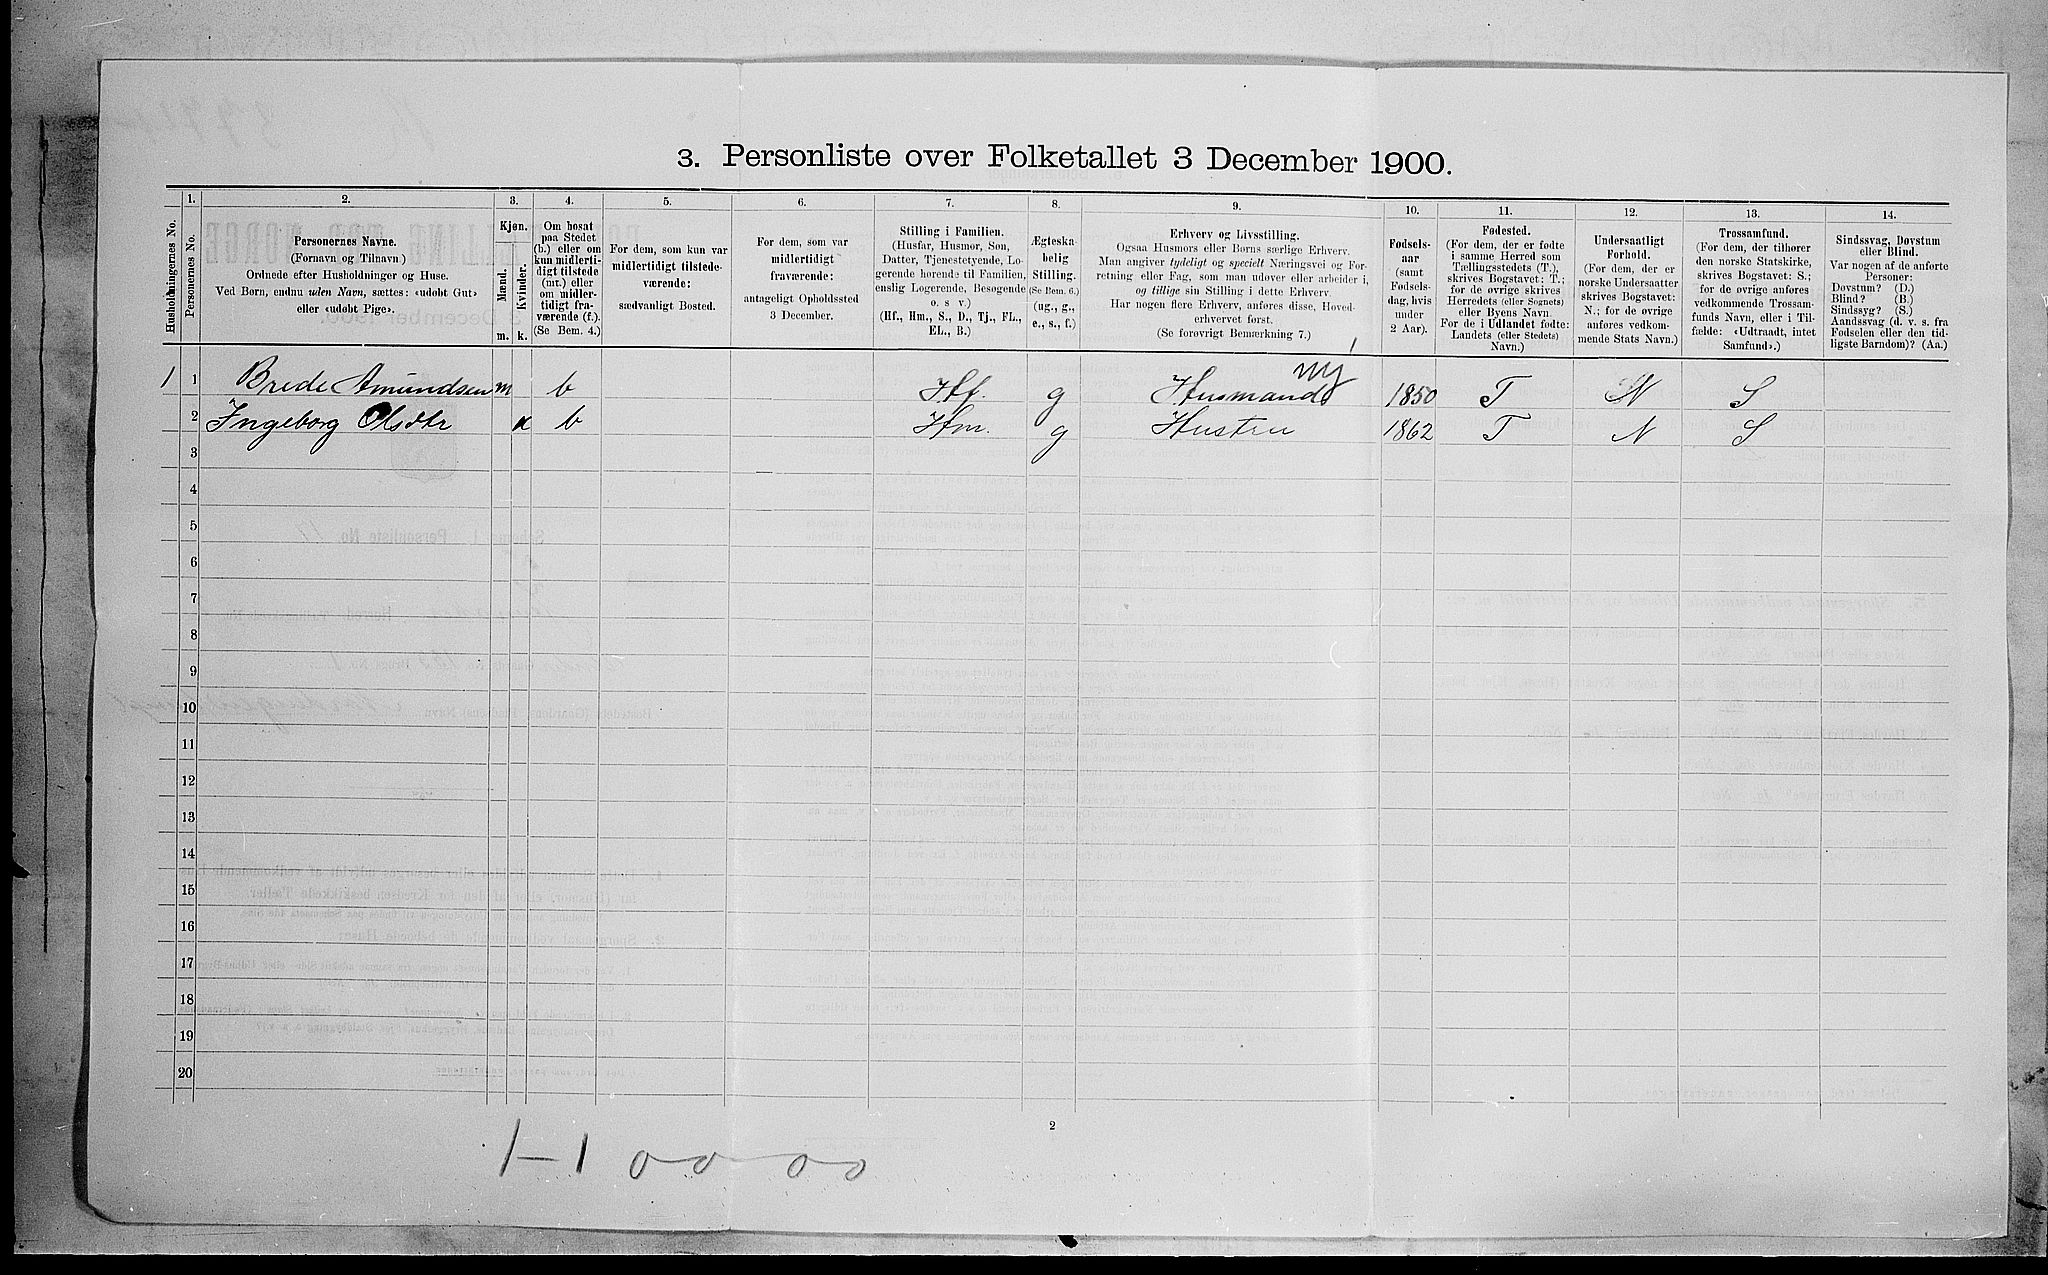 3. Personliste over Folketallet 3 December 1900.
Husholdningernes No.
1.
Personernes No.
2.
Personernes Navne.
(Fornavn og Tilnavn.)
Ordnede efter Husholdninger og Huse.
Ved Børn, endnu uden Navn, sættes: «udøbt Gut»
eller «udøbt Pige».
3.
Kjøn.
Mænd.
Kvinder.
m. k.
4.
Om bosat
paa Stedet
(b.) eller om
kun midlerti-
digt tilstede
(mt.) eller
om midler-
tidigt fra-
værende (f.).
(Se Bem. 4.)
5.
For dem, som kun var
midlertidigt tilstede-
værende:
sædvanligt Bosted.
6.
For dem, som var
midlertidigt
fraværende:
antageligt Opholdssted
3 December.
7.
Stilling i Familien.
(Husfar, Husmor, Søn,
Datter, Tjenestetyende, Lo-
gerende hørende til Familien,
enslig Logerende, Besøgende
o. s. v.)
(Hf., Hm., S., D., Tj., FL.,
EL., B.)
8.
Ægteska-
belig
Stilling.
(Se Bem. 6.)
(ug., g.,
e., s., f.)
9.
Erhverv og Livsstilling.
Ogsaa Husmors eller Børns særlige Erhverv.
Man angiver tydeligt og specielt Næringsvei og For-
retning eller Fag, som man udøver eller arbeider i,
og tillige sin Stilling i dette Erhverv.
Har nogen flere Erhverv, anføres disse, Hoved-
erhvervet først.
(Se forøvrigt Bemærkning 7.)
10.
Fødsels-
aar
(samt
Fødsels-
dag, hvis
under
2 Aar).
11.
Fødested.
(For dem, der er fødte
i samme Herred som
Tællingsstedets (T.),
skrives Bogstavet: T.;
for de øvrige skrives
Herredets (eller Sognets)
eller Byens Navn.
For de i Udlandet fødte:
Landets (eller Stedets)
Navn.)
12.
Undersaatligt
Forhold.
(For dem, der er
norske Undersaatter
skrives Bogstavet:
N.; for de øvrige
anføres vedkom-
mende Stats Navn.)
13.
Trossamfund.
(For dem, der tilhører
den norske Statskirke,
skrives Bogstavet: S.;
for de øvrige anføres
vedkommende Trossam-
funds Navn, eller i Til-
fælde: «Udtraadt, intet
Samfund».)
14.
Sindssvag, Døvstum
eller Blind.
Var nogen af de anførte
Personer:
Døvstum? (D.)
Blind? (B.)
Sindssyg? (S.)
Aandssvag (d. v. s. fra
Fødselen eller den tid-
ligste Barndom)? (Aa.)
1 1 Brede Amundsen m b Hf. g Husmand 1850 T N S
2 Ingeborg Olsdtr k b Hm. g Hustru 1862 T N S
3
4
5
6
7
8
9
10
11
12
13
14
15
16
17
18
19
20
2
1–1 00 00